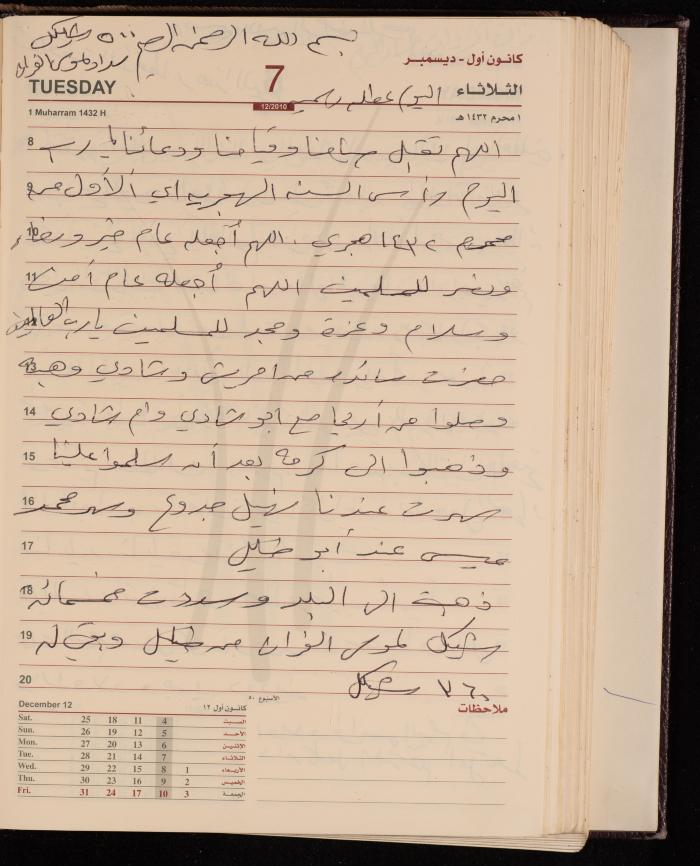 بسم الله الرحمن الرحيم ٥٠٠ شيكل
كانون أول - ديسمبر
TUESDAY
7
12/2010
الثلاثاء
اليوم عطله رسمية
1 Muharram 1432 H
١ محرم ١٤٣٢ هـ
8 اللهم تقبل صيامنا وقيامنا ودعائنا يا رب
9 اليوم رأس السنه الهجريه اي الأول من
10 محرم ١٤٣٢ هجري . اللهم أجعله عام خير ورضاء
11 ونصر للمسلمين اللهم أجعله عام أمن
12 وسلام وعزة ومجد للمسلمين يارب العالمين
13 حضرت سائده من وشادي وهبه
14 وصلوا من أريحا مع ابو شادي وام شادي
15 وذهبوا الى كرمه بعد أن سلموا علينا
16 سهرت عندنا جدوع وسهر محمد
17 عيسى عند أبو خليل
18 ذهبة الى البلد وسددت خمسمائه
19 شيكل من خليل وبقي له
20 ٧٦٠ شيكل
December 12
كانون أول ١٢
الأسبوع ٥٠
ملاحظات
Sat. 25 18 11 4 السبت
Sun. 26 19 12 5 الأحد
Mon. 27 20 13 6 الاثنين
Tue. 28 21 14 7 الثلاثاء
Wed. 29 22 15 8 1 الأربعاء
Thu. 30 23 16 9 2 الخميس
Fri. 31 24 17 10 3 الجمعة